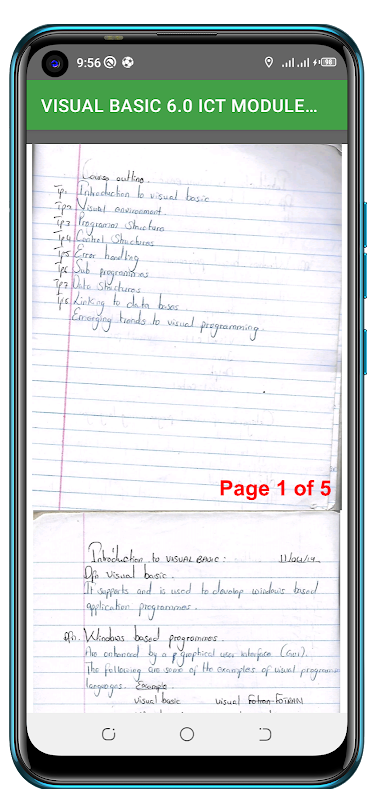 9:56
98
VISUAL BASIC 6.0 ICT MODULE...
Course outline.
Tp1 Introduction to visual basic
Tp2 Visual environment
Tp3 Programme Structure
Tp4 Control Structures
Tp5 Error handling
Tp6 Sub programmes
Tp7 Data Structures
Tp8 Linking to data bases
Emerging trends to visual programming.
Page 1 of 5
Introduction to VISUAL BASIC :
Dfn Visual basic.
It supports and is used to develop windows based
application programmes.
Dfn. Windows based programmes.
Are enhanced by a graphical user interface (GUI).
The following are some of the examples of visual programm
languages. Example
visual basic visual Fotran FOTRAN